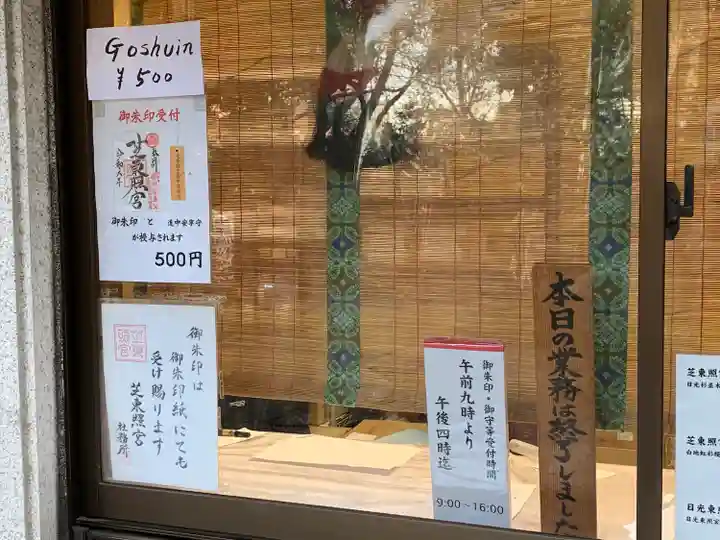 Goshuin
¥500
御朱印受付
芝東照宮
御朱印 と 道中安享守
が授与されます
500円
御朱印は
御朱印紙にても
受け賜ります
芝東照宮
社務所
御朱印・御守等受付時間
午前九時より
午後四時迄
9:00~16:00
本日の業務は終了しました
芝東照宮
日光杉並木
芝東照宮
白地虹彩
日光東照宮
日光東照宮